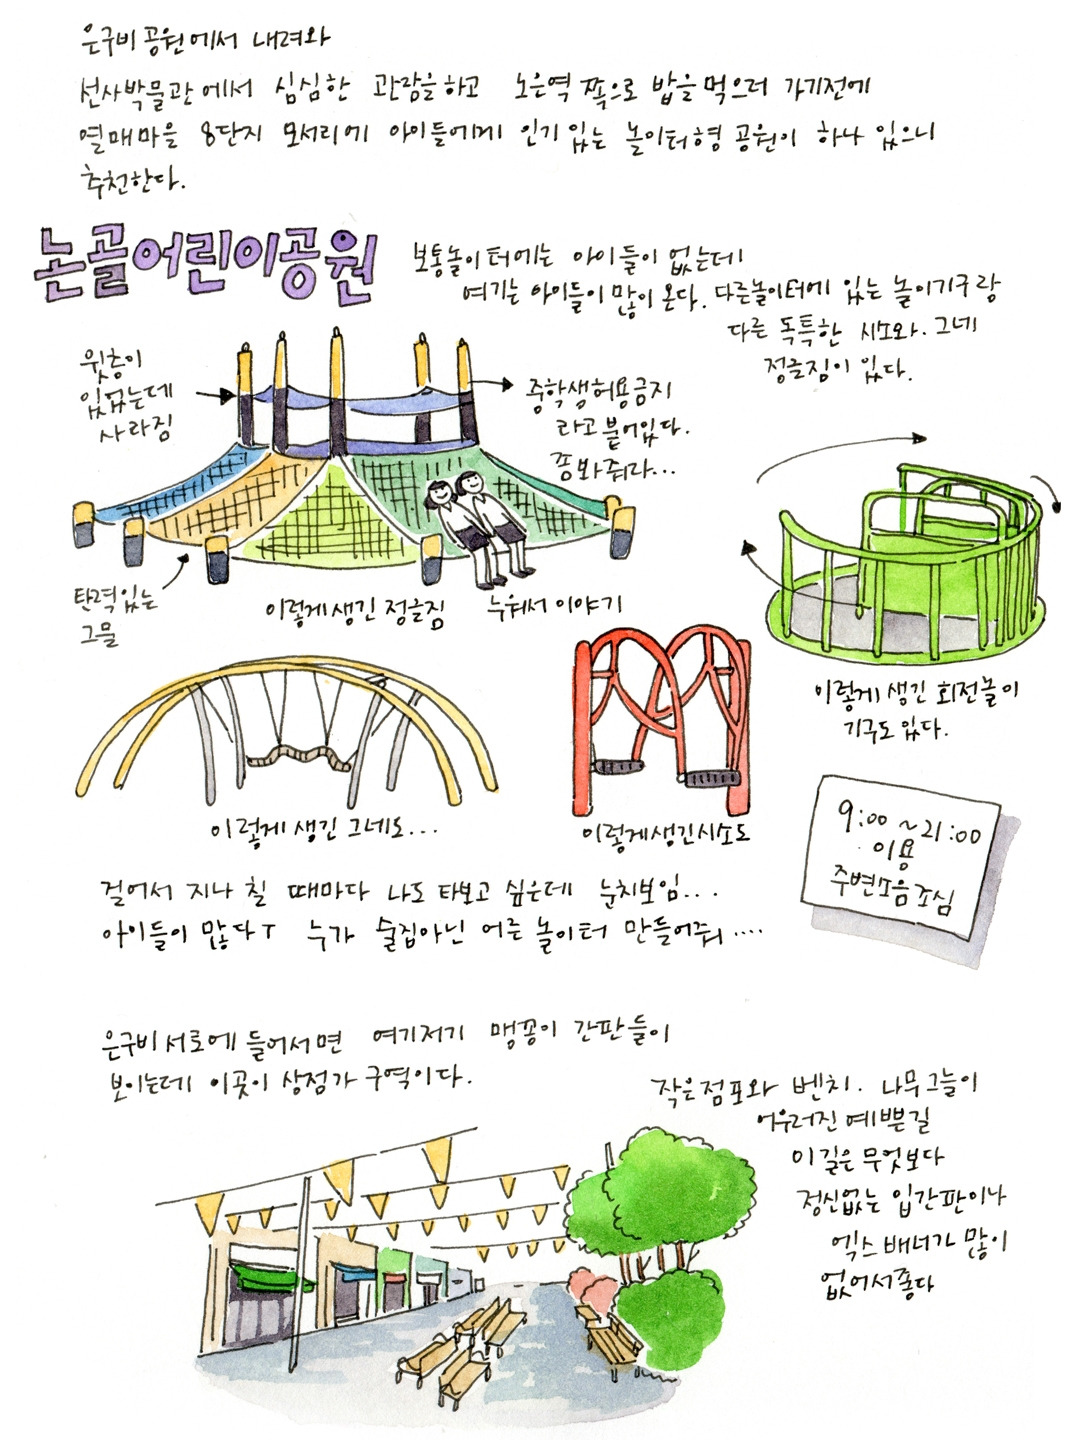 은구비공원에서 내려와
선사박물관에서 심심한 관람을하고 노은역 쪽으로 밥을먹으러 가기전에
열매마을 8단지 모서리에 아이들에게 인기있는 놀이터형 공원이 하나 있으니
추천한다.
논골어린이공원
보통놀이터에는 아이들이 없는데
여기는 아이들이 많이 온다. 다른놀이터에 있는 놀이기구랑
다른 독특한 시소와. 그네
정글짐이 있다.
윗층이
있었는데
사라짐
중학생허용금지
라고 붙어있다.
좀 봐줘라...
탄력있는
그물
이렇게생긴 정글짐
누워서 이야기
이렇게 생긴 회전놀이
기구도 있다.
이렇게 생긴 그네도...
이렇게생긴시소도
9:00 ~21:00
이용
주변소음조심
걸어서 지나칠 때마다 나도 타보고 싶은데 눈치보임...
아이들이 많다ㅜ 누가 술집아닌 어른놀이터 만들어줘 ....
은구비서로에 들어서면 여기저기 맹꽁이 간판들이
보이는데 이곳이 상점가 구역이다.
작은점포와 벤치. 나무그늘이
어우러진 예쁜길
이길은 무엇보다
정신없는 입간판이나
엑스배너가 많이
없어서좋다